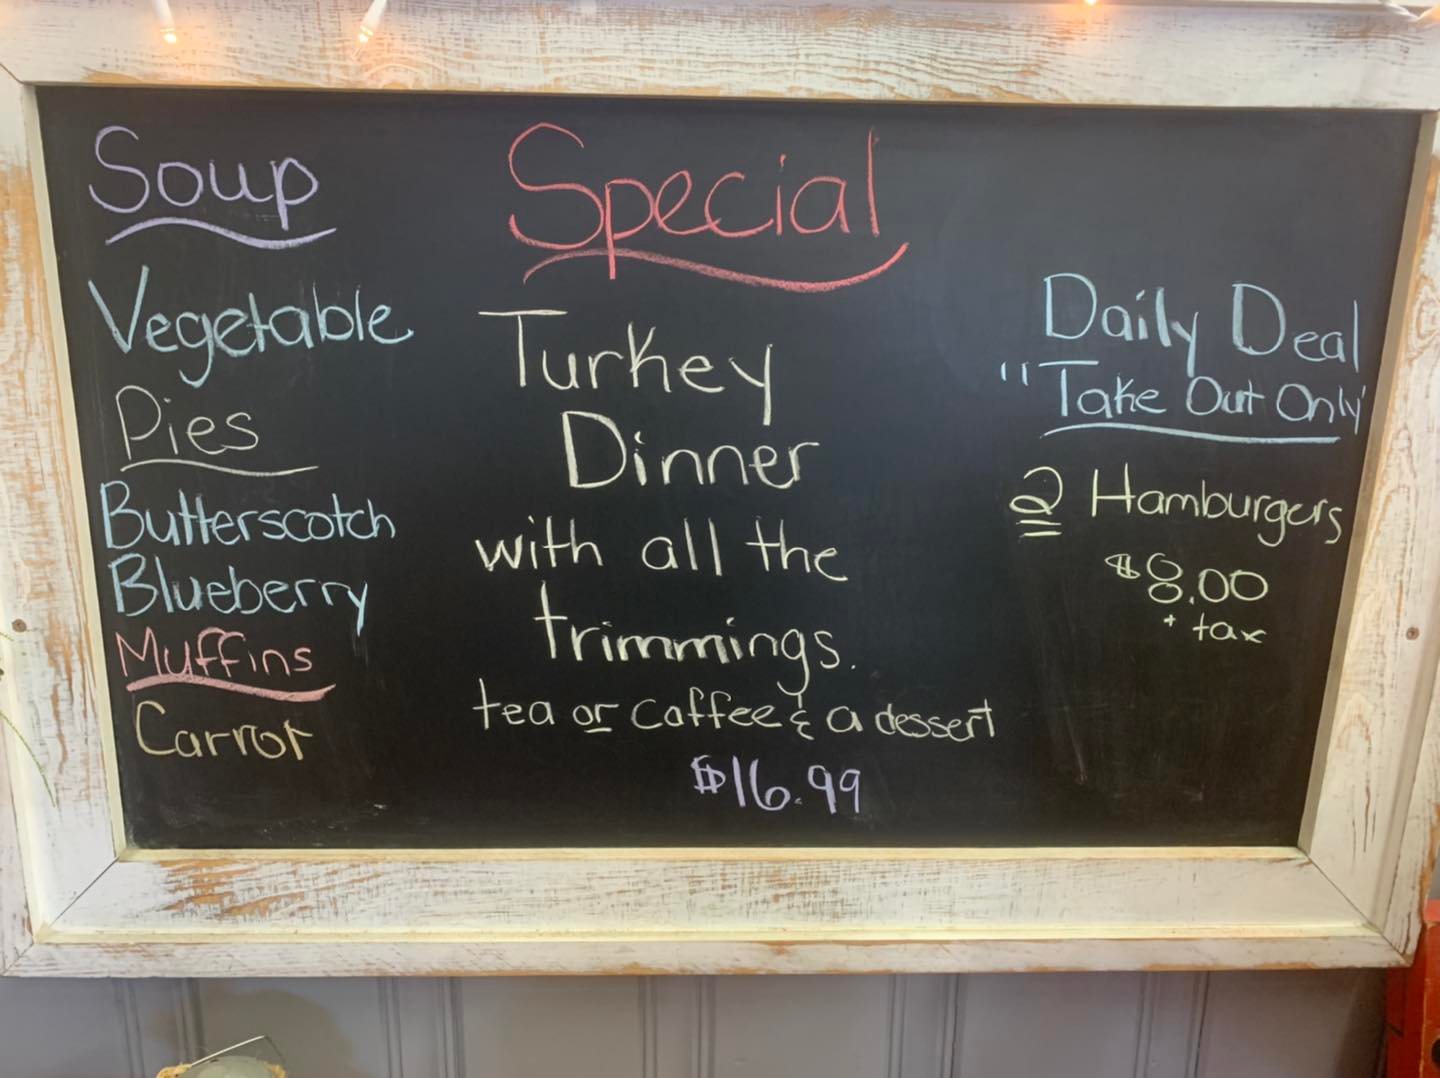 Soup
Vegetable
Pies
Butterscotch
Blueberry
Muffins
Carrot
Special
Turkey
Dinner
with all the
trimmings.
tea or coffee & a dessert
$16.99
Daily Deal
"Take Out Only"
2 Hamburgers
$8.00
+ tax